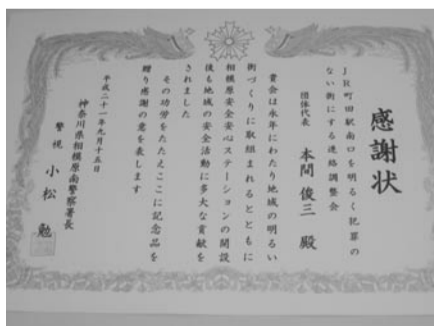 感謝状
JR町田駅南口を明るく犯罪の
ない街にする連絡調整会
団体代表 本間俊三 殿
貴会は永年にわたり地域の明るい
街づくりに取組まれるとともに
相模原安全安心ステーションの開設
後も地域の安全活動に多大な貢献を
されました
その功労をたたえここに記念品を
贈り感謝の意を表します
平成二十一年九月十五日
神奈川県相模原南警察署長
警視 小松 勉